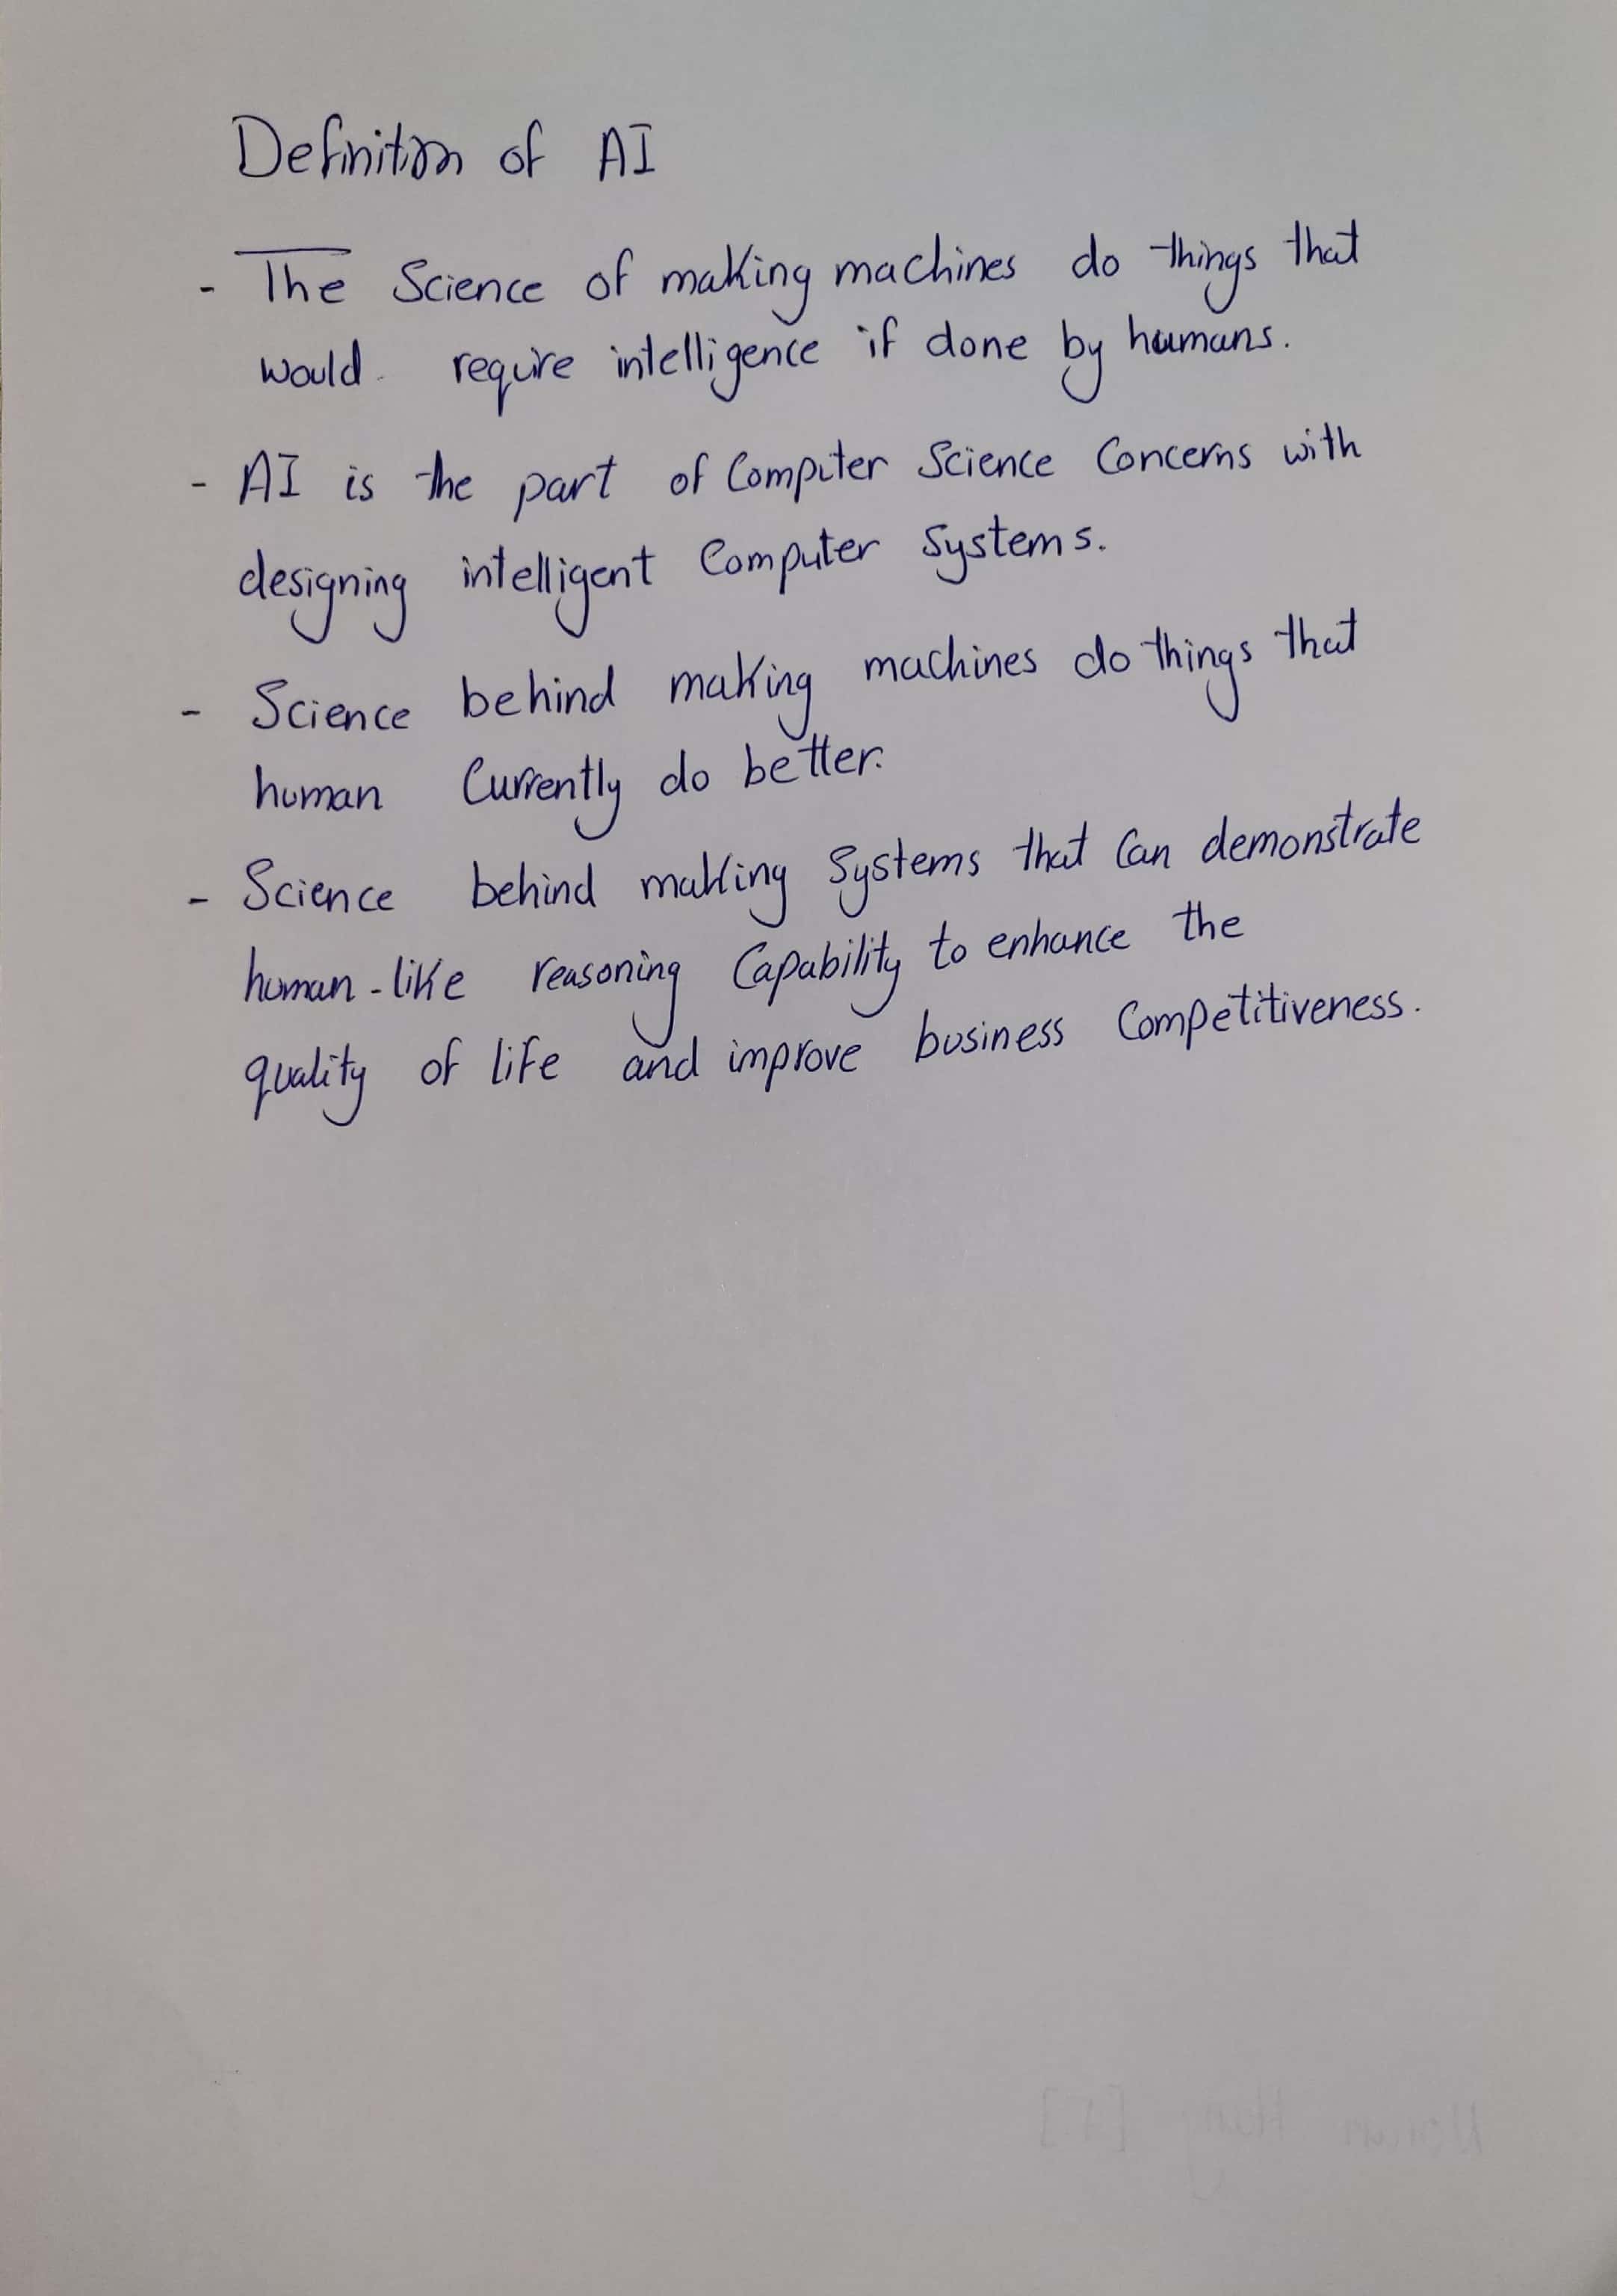 Definition of AI
- The Science of making machines do things that
would require intelligence if done by humans.
- AI is the part of Computer Science Concerns with
designing intelligent Computer Systems.
- Science behind making machines do things that
human Currently do better.
- Science behind making Systems that Can demonstrate
human-like reasoning Capability to enhance the
quality of life and improve business Competitiveness.